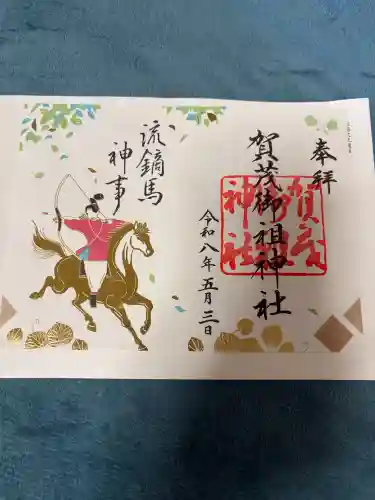 奉拝
賀茂御祖神社
賀茂
御祖
神社
令和八年五月三日
流鏑馬
神事